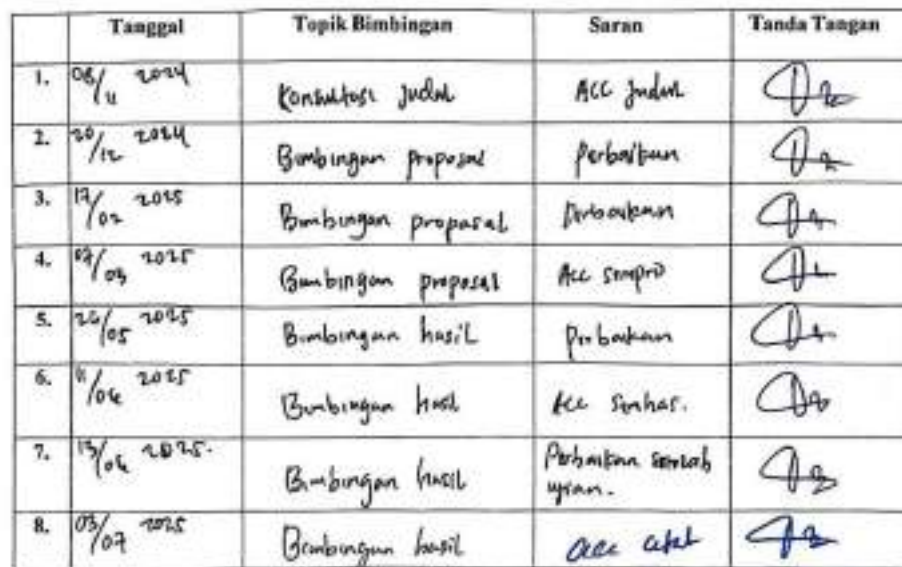 Tanggal Topik Bimbingan Saran Tanda Tangan
1. 08/11 2024 Konsultasi judul ACC judul
2. 20/12 2024 Bimbingan proposal Perbaikan
3. 17/02 2025 Bimbingan proposal Perbaikan
4. 07/03 2025 Bimbingan proposal Acc sempro
5. 2025 Bimbingan hasil Perbaikan
6. 2025 Bimbingan hasil Acc semhas.
7. 13/06 2025. Bimbingan hasil Perbaikan setelah
ujian.
8. 03/07 2025 Bimbingan hasil acc cetak